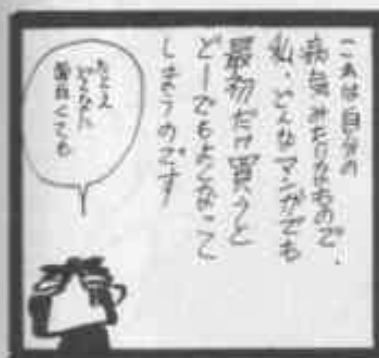 これは自分の
病気みたいなもので、
私、どんなマンガでも
最初だけ買うと
どーでもよくなって
しまうのです
たとえ
どんなに
面白くても